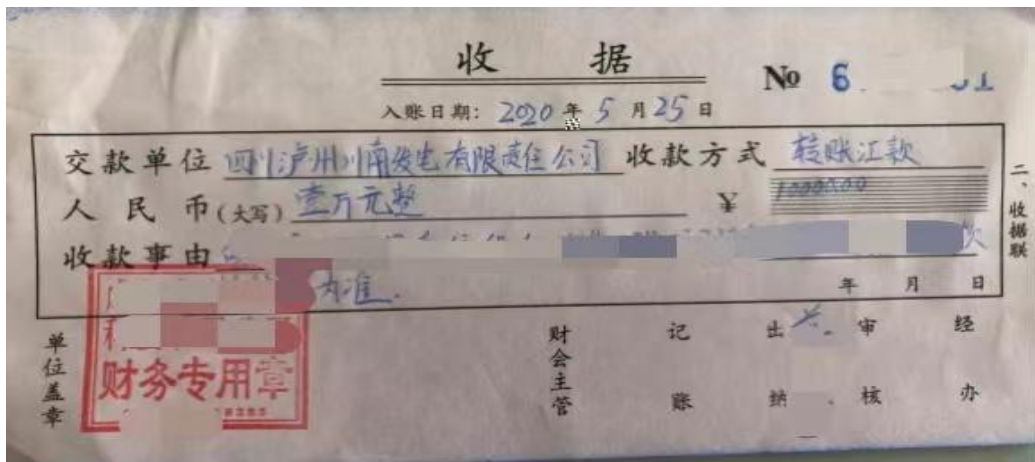 收 据
No 6
入账日期: 2020 年 5 月 25 日
交款单位 四川泸州川南发电有限责任公司 收款方式 转账汇款
人民币(大写) 壹万元整 ¥ 10000.00
收款事由 款
为准.
年 月 日
二、收据联
单位盖章
财务专用章
财会主管
记账
出纳
审核
经办